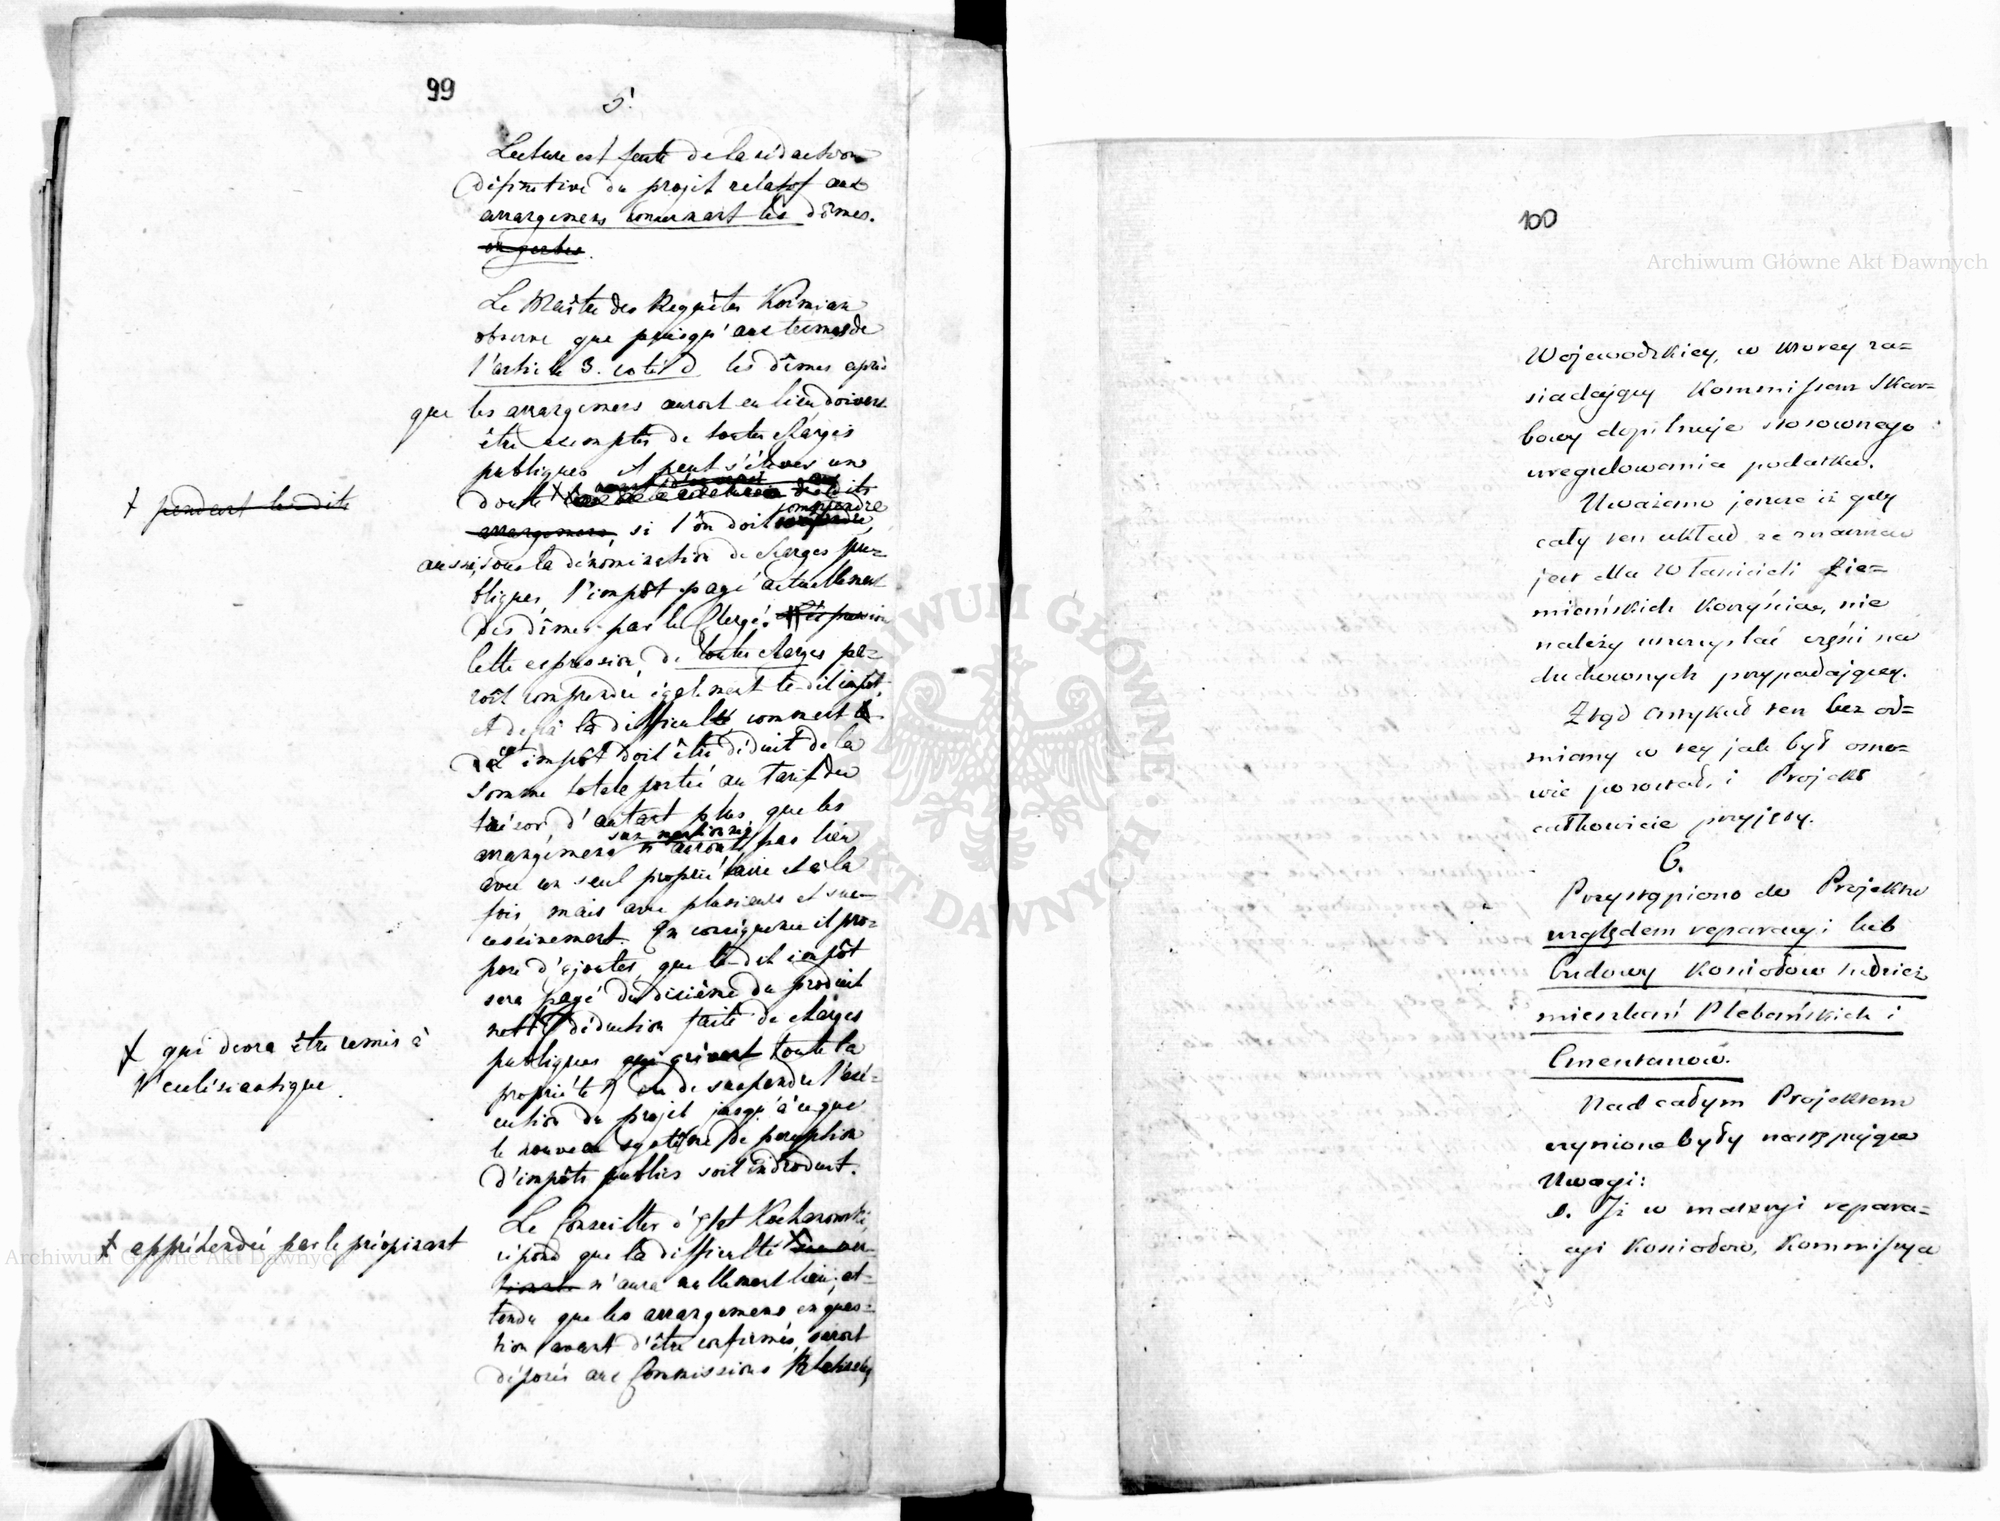 99
5.
Lecture est faite de la rédaction
définitive du projet relatif aux
arrangemens concernant les dîmes.
en gerbes.
Le Maître des Requêtes Koźmian
observe que puisqu'aux termes de
l'article 3. coté D les dîmes après
que les arrangemens auront eu lieu doivent
être exemptes de toutes charges
publiques, il peut s'élever un
doute
arrangemens, si l'on doit comprendre
aussi, sous la dénomination de charges pu=
bliques, l'impôt payé actuellement
des dîmes par le Clergé.
Cette expression, de toutes charges pa=
roit comprendre également le-dit impôt.
Et de là la difficulté comment
cet impôt doit être déduit de la
somme totale portée au Tarif du
trésor, d'autant plus, que les
arrangemens sus mentionnés n'auront pas lieu
avec un seul propriétaire et à la
fois, mais avec plusieurs et suc=
cessivement. En conséquence il pro=
pose d'ajouter, que le-dit impôt
sera payé du dixième du produit
nett (déduction faite de charges
publiques qui grèvent toute la
propriété) ou de suspendre l'exé=
cution du projet jusqu'à ce que
le nouveau système de perception
d'impôts publics soit introduit.
Le Conseiller d'Etat Kochanowski,
répond que la difficulté
n'aura nullement lieu, at=
tendu que les arrangemens en ques=
tion avant d'être confirmés, seront
déposés aux Commissions
+ pendant les dits
+ qui devra être remis à
l'ecclésiastique
+ appréhendée par le préopinant
100
Wojewodzkiey, w ktorey za=
siadaiący Kommissarz Skar=
bowy dopilnuje stosownego
uregulowania podatku.
Uważano jeszcze iż gdy
cały ten układ ze
jest dla Właścicieli Zie=
miańskich korzyścią, nie
należy uszczuplać części na
duchownych przypadającey.
Ztąd artykuł ten bez od=
miany w tey jak był osno=
wie pozostał, i Projekt
całkowicie przyjęty.
6.
Przystąpiono do Projektu
względem reparacyi lub
budowy Kościołów tudzież
mieszkań Plebańskich i
Cmentarzow.
Nad całym Projektem
czynione były następujące
Uwagi:
a. Iż w materyi repara=
cyi Kościołow, Kommissya
Archiwum Główne Akt Dawnych
Archiwum Główne Akt Dawnych
ARCHIWUM GŁÓWNE AKT DAWNYCH